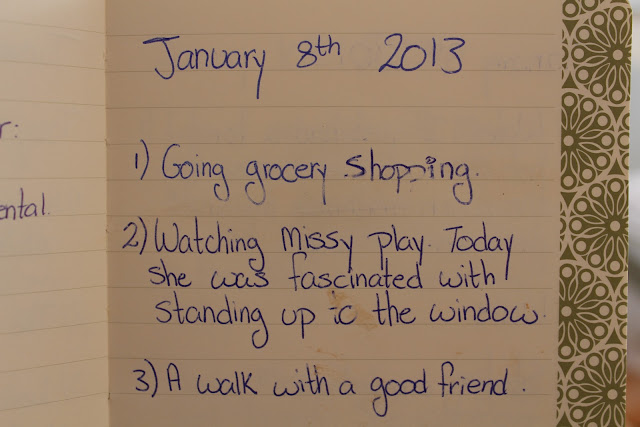 r:
ental.
January 8th 2013
1) Going grocery shopping.
2) Watching Missy play. Today
she was fascinated with
standing up to the window.
3) A walk with a good friend.